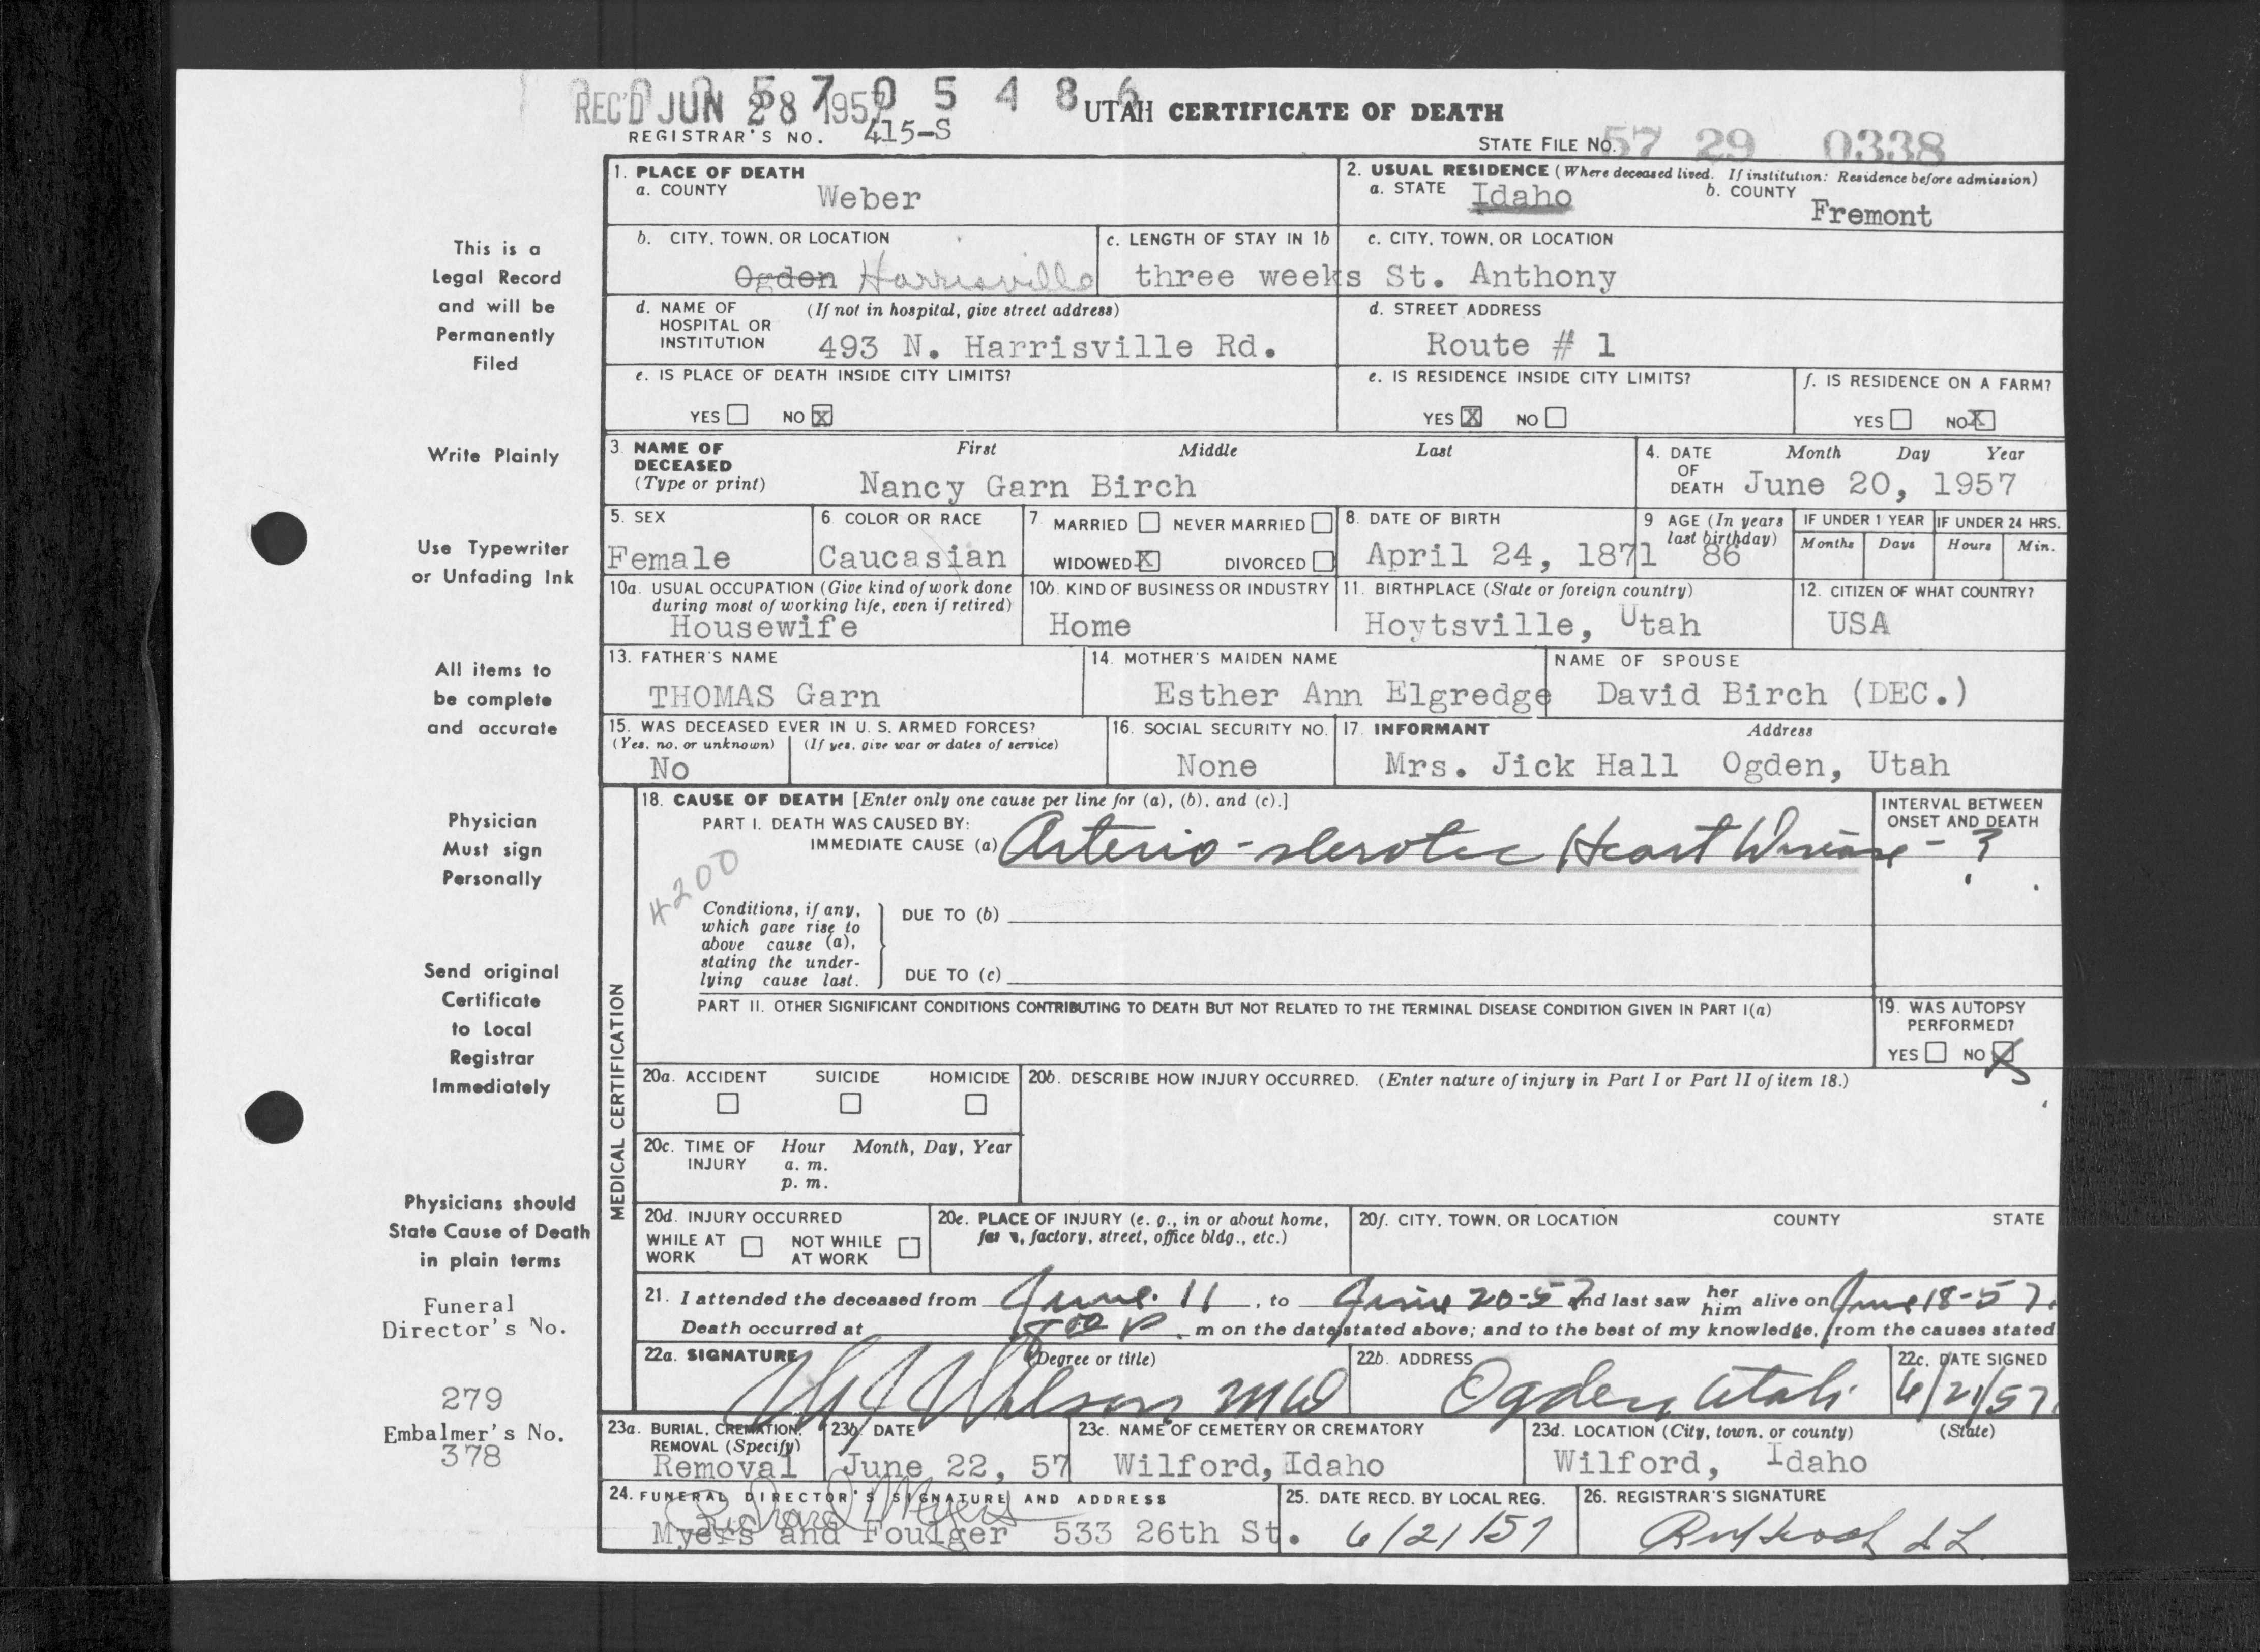 REC'D JUN 28 1957 0 5 4 8 6
UTAH CERTIFICATE OF DEATH
REGISTRAR'S NO. 415-S
STATE FILE NO. 57 29 0338
1. PLACE OF DEATH
a. COUNTY Weber
2. USUAL RESIDENCE (Where deceased lived. If institution: Residence before admission)
a. STATE Idaho b. COUNTY Fremont
b. CITY, TOWN, OR LOCATION
Ogden Harrisville
c. LENGTH OF STAY IN 1b
three weeks
c. CITY, TOWN, OR LOCATION
St. Anthony
d. NAME OF HOSPITAL OR INSTITUTION (If not in hospital, give street address)
493 N. Harrisville Rd.
d. STREET ADDRESS
Route # 1
e. IS PLACE OF DEATH INSIDE CITY LIMITS?
YES NO X
e. IS RESIDENCE INSIDE CITY LIMITS?
YES X NO
f. IS RESIDENCE ON A FARM?
YES NO X
3. NAME OF DECEASED (Type or print) First Middle Last
Nancy Garn Birch
4. DATE OF DEATH Month Day Year
June 20, 1957
5. SEX
Female
6. COLOR OR RACE
Caucasian
7. MARRIED NEVER MARRIED
WIDOWED X DIVORCED
8. DATE OF BIRTH
April 24, 1871
9 AGE (In years last birthday)
86
IF UNDER 1 YEAR
Months Days
IF UNDER 24 HRS.
Hours Min.
10a. USUAL OCCUPATION (Give kind of work done during most of working life, even if retired)
Housewife
10b. KIND OF BUSINESS OR INDUSTRY
Home
11. BIRTHPLACE (State or foreign country)
Hoytsville, Utah
12. CITIZEN OF WHAT COUNTRY?
USA
13. FATHER'S NAME
THOMAS Garn
14. MOTHER'S MAIDEN NAME
Esther Ann Elgredge
NAME OF SPOUSE
David Birch (DEC.)
15. WAS DECEASED EVER IN U. S. ARMED FORCES?
(Yes, no, or unknown) (If yes, give war or dates of service)
No
16. SOCIAL SECURITY NO.
None
17. INFORMANT Address
Mrs. Jick Hall Ogden, Utah
MEDICAL CERTIFICATION
18. CAUSE OF DEATH [Enter only one cause per line for (a), (b), and (c).]
PART I. DEATH WAS CAUSED BY:
IMMEDIATE CAUSE (a) Arterio-sclerotic Heart Disease - ?
INTERVAL BETWEEN ONSET AND DEATH
4200
Conditions, if any, which gave rise to above cause (a), stating the underlying cause last.
DUE TO (b)
DUE TO (c)
PART II. OTHER SIGNIFICANT CONDITIONS CONTRIBUTING TO DEATH BUT NOT RELATED TO THE TERMINAL DISEASE CONDITION GIVEN IN PART I(a)
19. WAS AUTOPSY PERFORMED?
YES NO X
20a. ACCIDENT SUICIDE HOMICIDE
20b. DESCRIBE HOW INJURY OCCURRED. (Enter nature of injury in Part I or Part II of item 18.)
20c. TIME OF INJURY Hour Month, Day, Year
a. m.
p. m.
20d. INJURY OCCURRED
WHILE AT WORK NOT WHILE AT WORK
20e. PLACE OF INJURY (e. g., in or about home, farm, factory, street, office bldg., etc.)
20f. CITY, TOWN, OR LOCATION COUNTY STATE
21. I attended the deceased from June 11, to June 20-57 and last saw her him alive on June 18-57.
Death occurred at m on the date stated above; and to the best of my knowledge, from the causes stated
22a. SIGNATURE (Degree or title)
Wilson MD
22b. ADDRESS
Ogden, Utah
22c. DATE SIGNED
6/21/57
23a. BURIAL, CREMATION, REMOVAL (Specify)
Removal
23b. DATE
June 22, 57
23c. NAME OF CEMETERY OR CREMATORY
Wilford, Idaho
23d. LOCATION (City, town, or county) (State)
Wilford, Idaho
24. FUNERAL DIRECTOR'S SIGNATURE AND ADDRESS
Richard Myers
Myers and Foulger 533 26th St.
25. DATE RECD. BY LOCAL REG.
6/21/57
26. REGISTRAR'S SIGNATURE
This is a
Legal Record
and will be
Permanently
Filed
Write Plainly
Use Typewriter
or Unfading Ink
All items to
be complete
and accurate
Physician
Must sign
Personally
Send original
Certificate
to Local
Registrar
Immediately
Physicians should
State Cause of Death
in plain terms
Funeral
Director's No.
279
Embalmer's No.
378